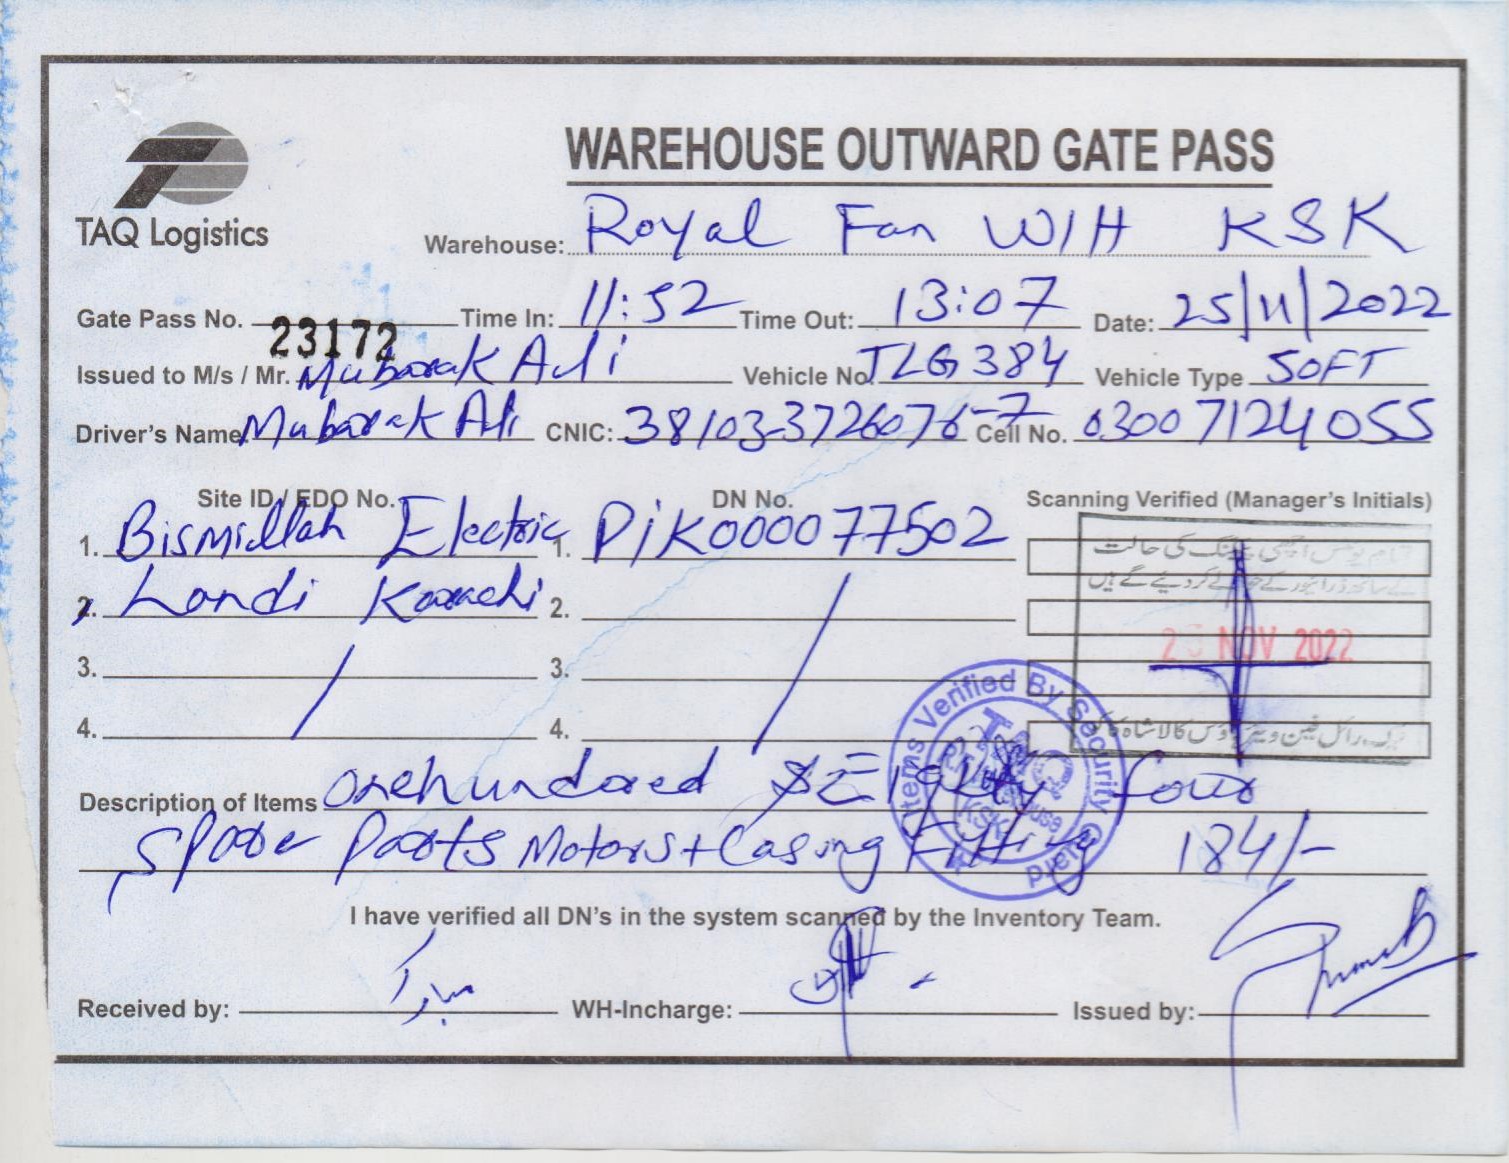 TAQ Logistics
WAREHOUSE OUTWARD GATE PASS
Warehouse: Royal Fan W/H KSK
Gate Pass No. 23172 Time In: 11:52 Time Out: 13:07 Date: 25/11/2022
Issued to M/s / Mr. Mubarak Ali Vehicle No. TLG 384 Vehicle Type SOFT
Driver's Name Mubarak Ali CNIC: 38103-3726076-7 Cell No. 03007124055
Site ID / EDO No. DN No. Scanning Verified (Manager's Initials)
1. Bismillah Electric 1. DiK000077502
2. Landi Karachi 2.
3. 3.
4. 4.
NOV 2022
Items Verified By Security Guard
KSK
Description of Items onehundored & Eighty four
Spare Parts Motors + Casing Fitting 184/-
I have verified all DN's in the system scanned by the Inventory Team.
Received by: WH-Incharge: Issued by: